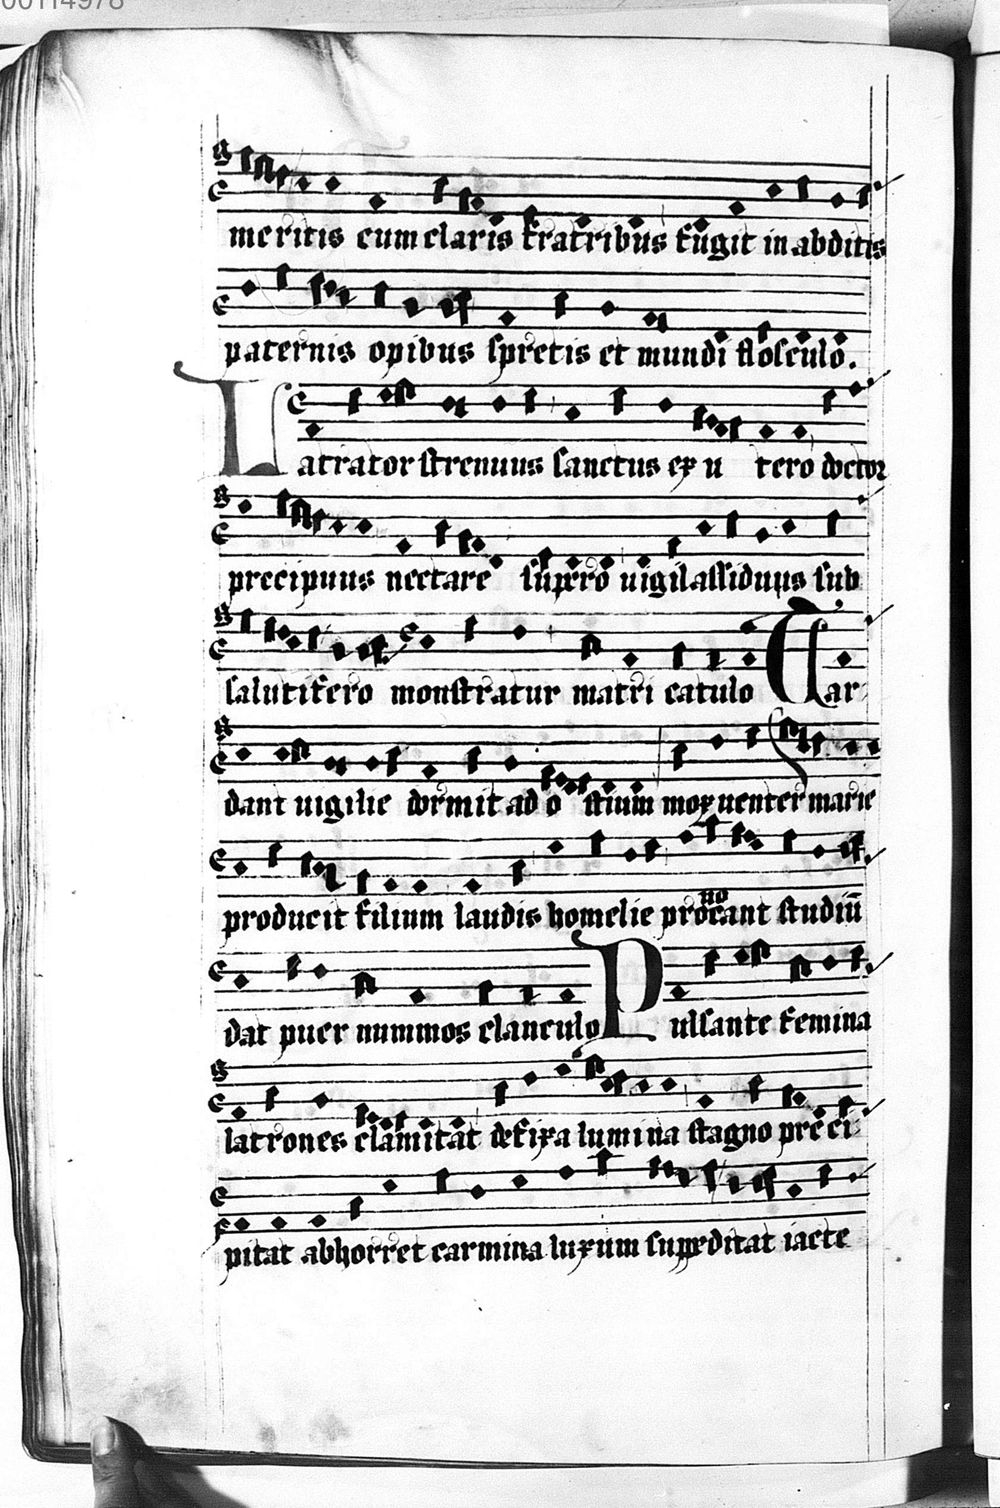 00114978
meritis cum claris fratribus fugit in abditis
paternis opibus spretis et mundi flosculo.
Latrator strenuus sanctus ex utero doctor
precipuus nectare supero uigil assiduus sub
salutifero monstratur matri catulo Car
dant uigilie dormit ad ostium mox uenter marie
producit filium laudis homelie pro no cant studiū
dat puer nummos clanculo Pulsante femina
latrones clamitat defixa lumina stagno preci
pitat abhorret carmina luxum suppeditat iacte